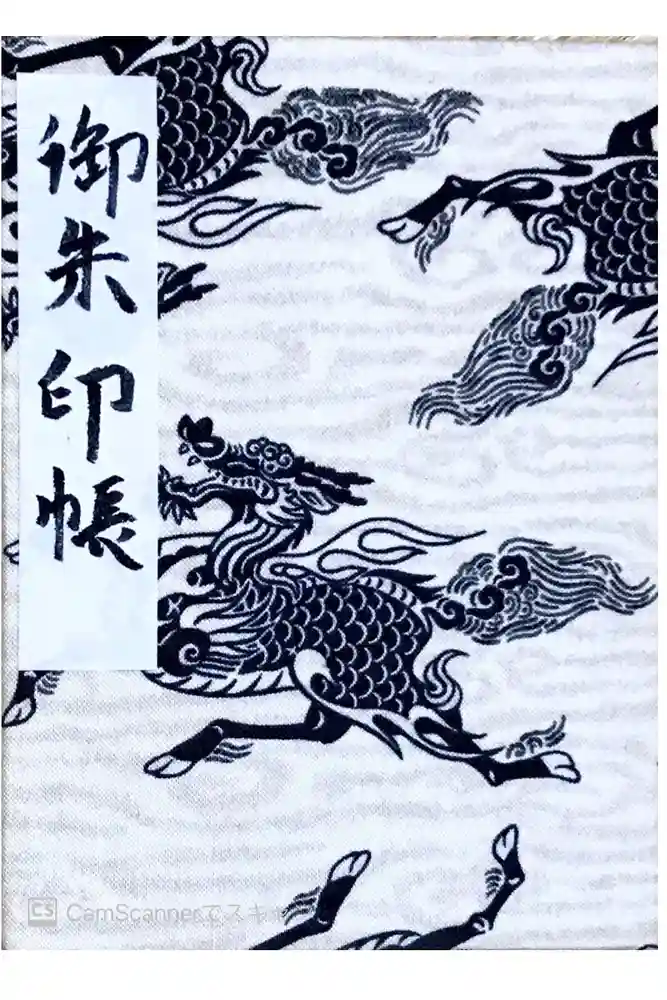 御朱印帳
CS CamScannerでスキャ